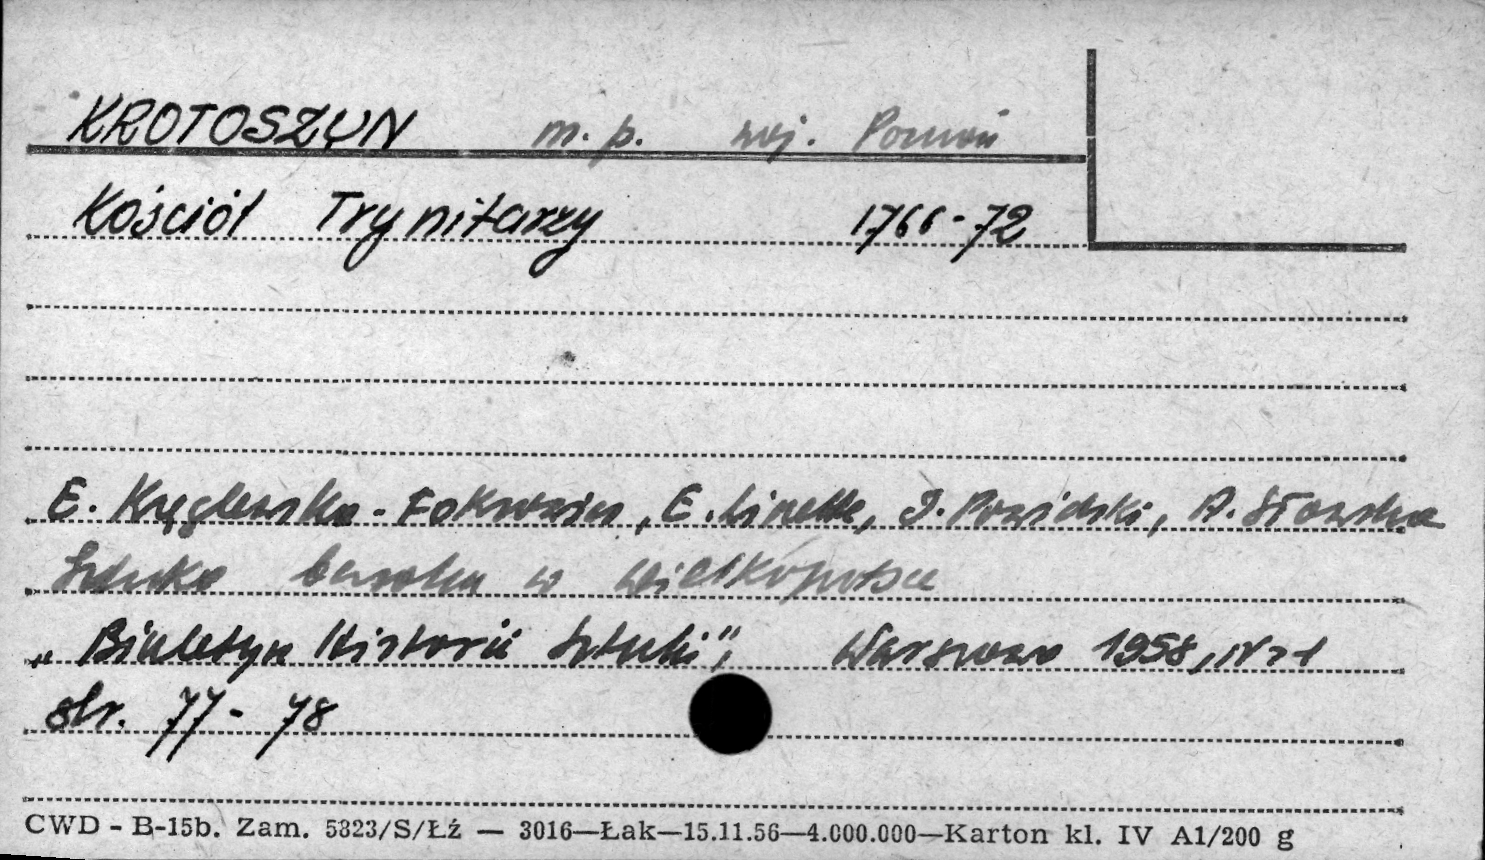 KROTOSZYN m. p. woj. Poznań
Kościół Trynitarzy 1766-72
E. Kręglewska-Foksowicz, E. Linette, J. Powidzki, A. Sławska
Sztuka baroku w Wielkopolsce
„Biuletyn Historii Sztuki", Warszawa 1958, Nr 1
str. 77-78
CWD - B-15b. Zam. 5823/S/Łź — 3016—Łak—15.11.56—4.000.000—Karton kl. IV A1/200 g